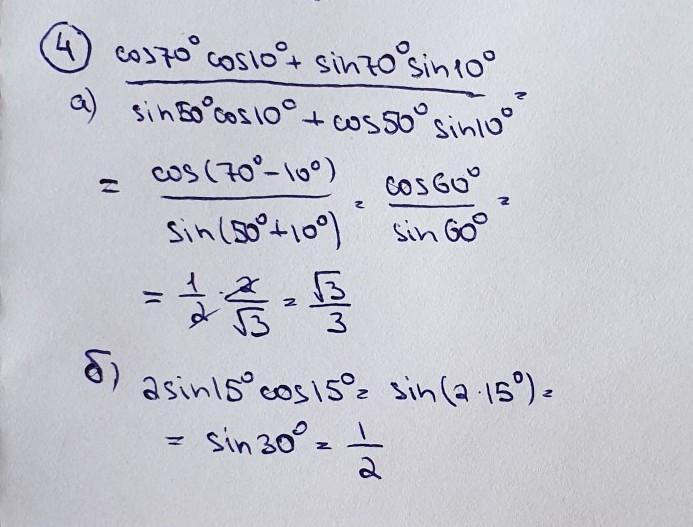 ④ cos70° cos10° + sin70° sin10°
а) / sin50° cos10° + cos50° sin10° =
= cos(70° - 10°) / sin(50° + 10°) = cos60° / sin60° =
= 1/2 · 2/√3 = √3/3
б) 2sin15° cos15° = sin(2·15°) =
= sin30° = 1/2